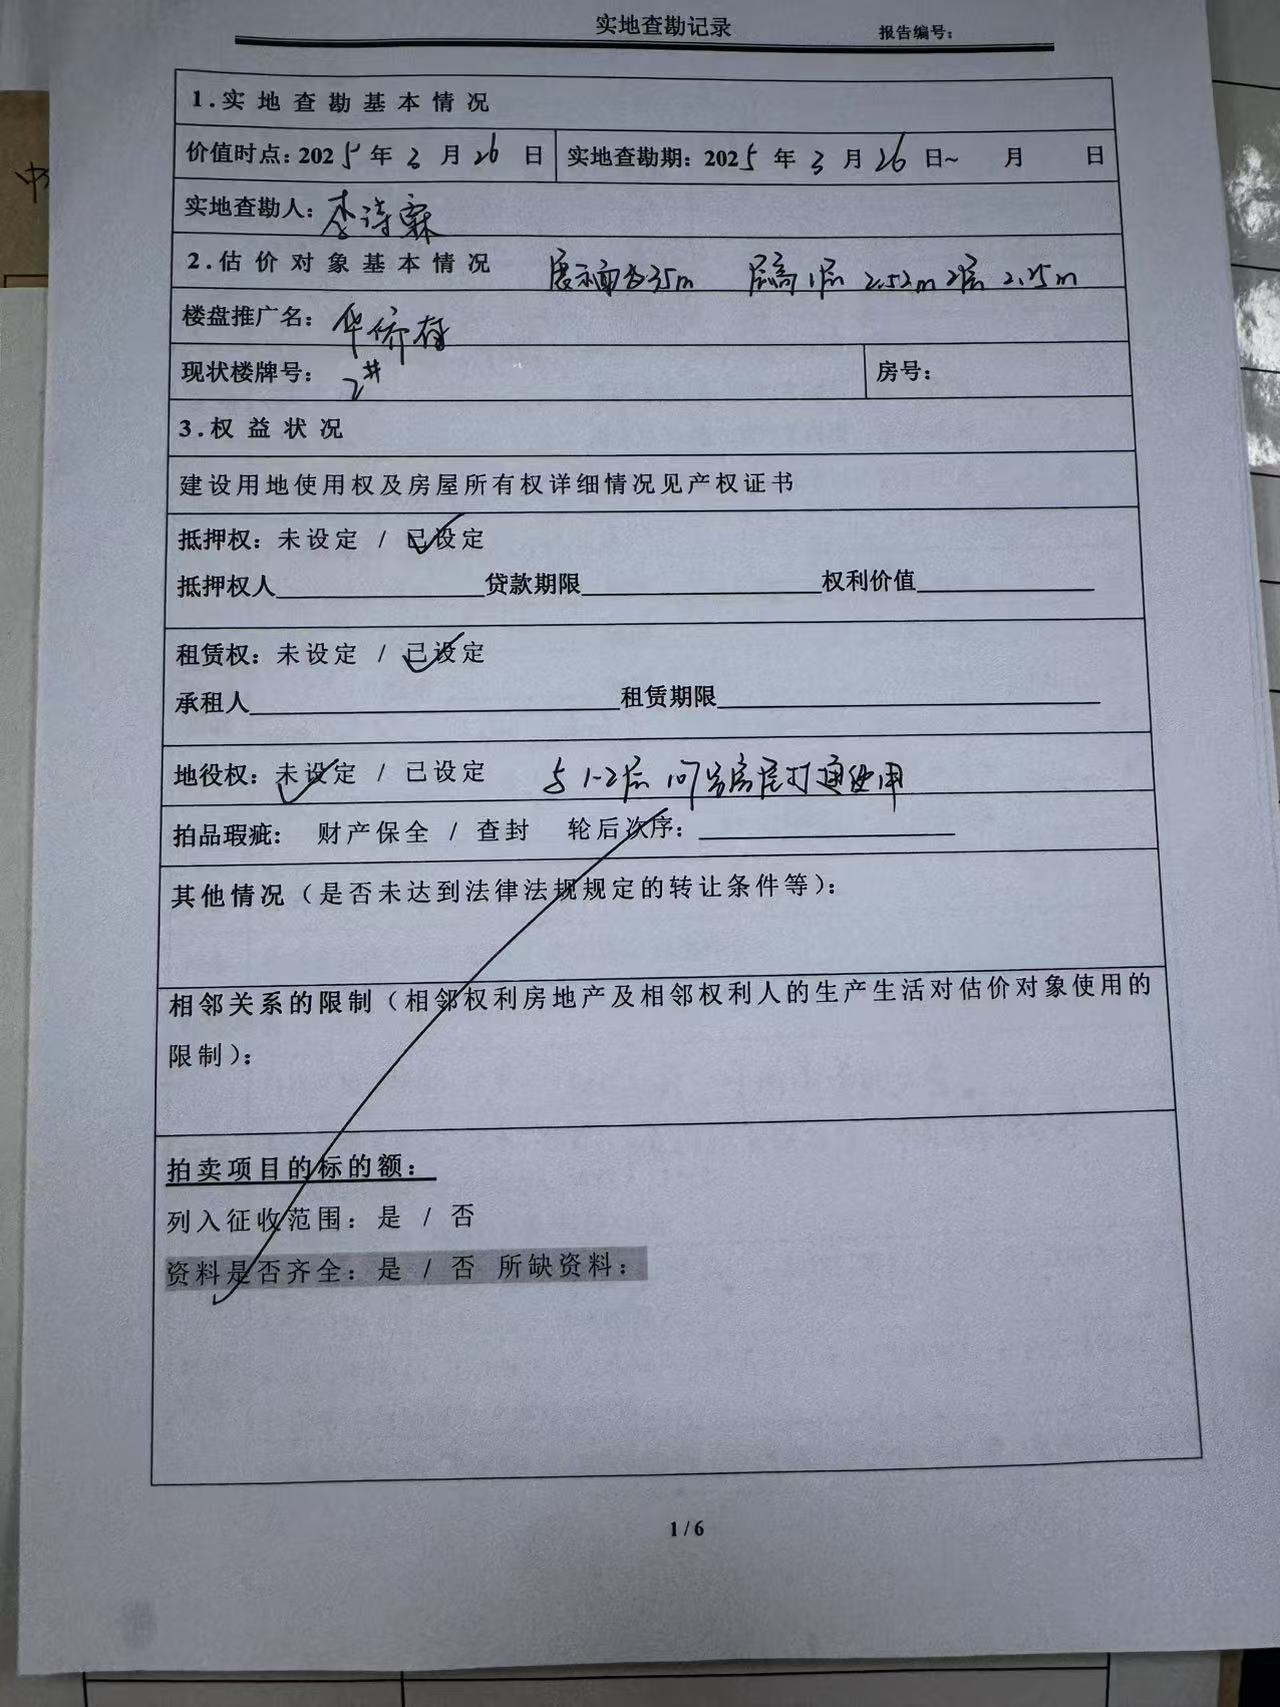 实地查勘记录 报告编号:
1.实地查勘基本情况
价值时点:2025年3月26日 实地查勘期:2025年3月26日~ 月 日
实地查勘人:李诗霖
2.估价对象基本情况 展示面为35m 层高1层2.52m 2层2.25m
楼盘推广名:华侨
现状楼牌号:2# 房号:
3.权益状况
建设用地使用权及房屋所有权详细情况见产权证书
抵押权:未设定 / 已设定
抵押权人 贷款期限 权利价值
租赁权:未设定 / 已设定
承租人 租赁期限
地役权:未设定 / 已设定 与1-2层107号房屋打通使用
拍品瑕疵: 财产保全 / 查封 轮后次序:
其他情况(是否未达到法律法规规定的转让条件等):
相邻关系的限制(相邻权利房地产及相邻权利人的生产生活对估价对象使用的
限制):
拍卖项目的标的额:
列入征收范围:是 / 否
资料是否齐全:是 / 否 所缺资料:
1 / 6